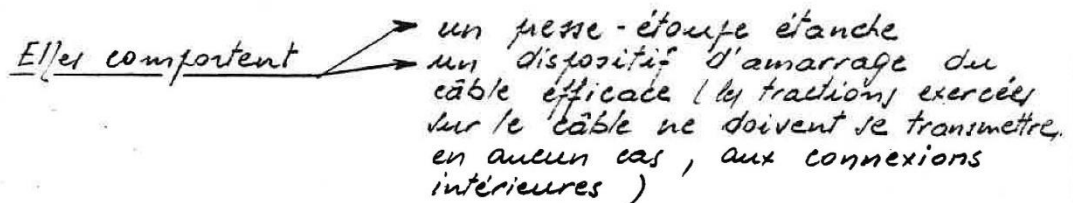 Elles comportent
un presse-étoupe étanche
un dispositif d'amarrage du
câble efficace (les tractions exercées
sur le câble ne doivent se transmettre,
en aucun cas, aux connexions
intérieures)